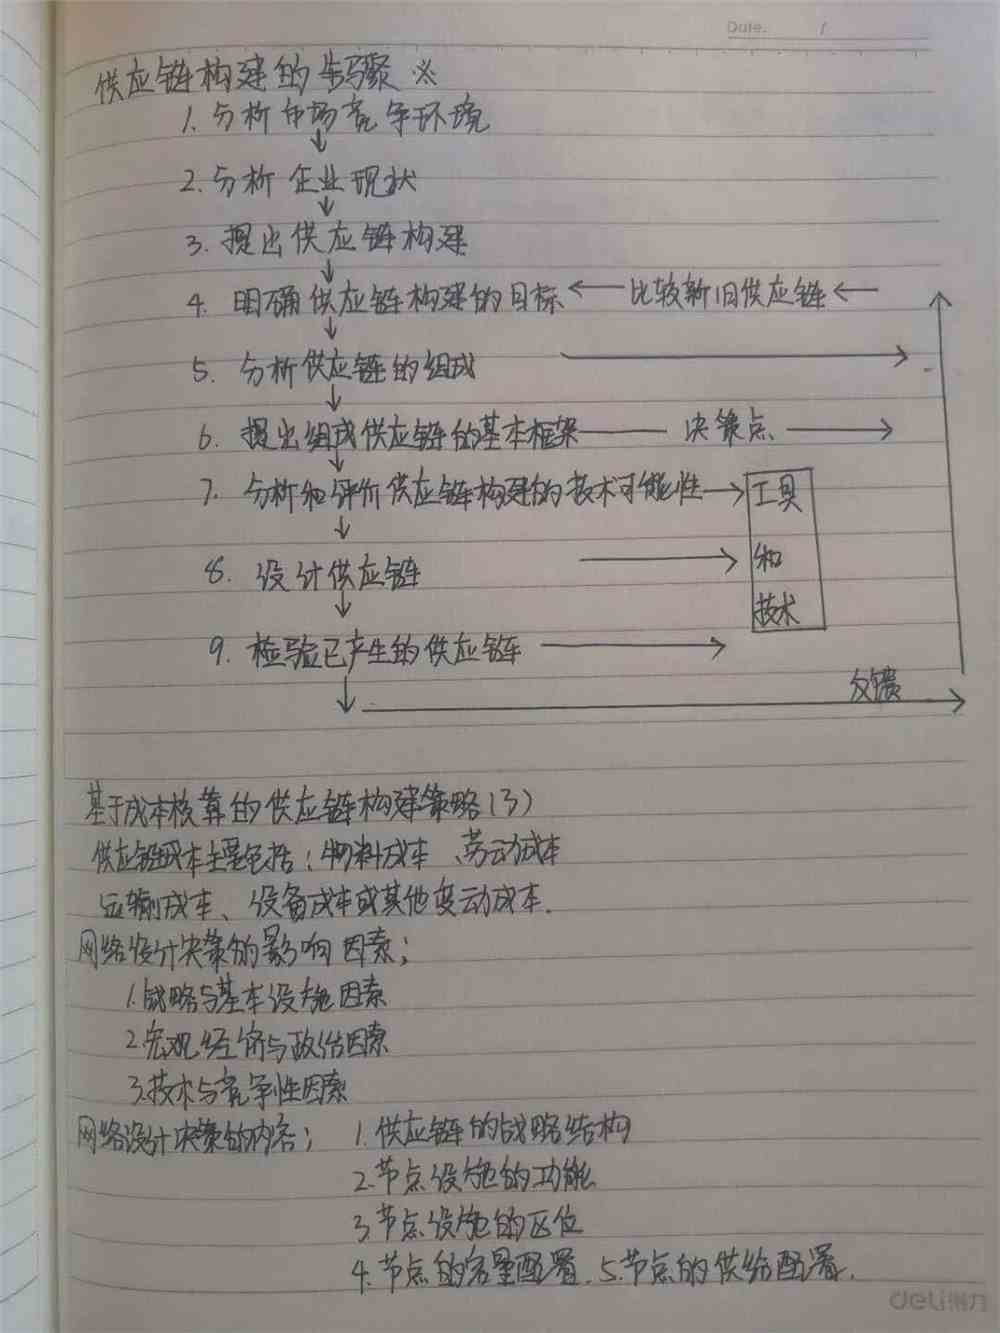 Date. /
供应链构建的步骤 ※
1. 分析市场竞争环境
↓
2. 分析企业现状
↓
3. 提出供应链构建
↓
4. 明确供应链构建的目标 ← 比较新旧供应链 ←
↓
5. 分析供应链的组成 →
↓
6. 提出组成供应链的基本框架 — 决策点 →
↓
7. 分析和评价供应链构建的技术可能性 → 工具
↓
8. 设计供应链 → 和
技术
↓
9. 检验已产生的供应链 →
↓ 反馈 →
基于成本核算的供应链构建策略(3)
供应链成本主要包括:物料成本、劳动成本
运输成本、设备成本或其他变动成本.
网络设计决策的影响因素;
1.战略与基本设施因素
2.宏观经济与政治因素
3.技术与竞争性因素
网络设计决策的内容; 1.供应链的战略结构
2.节点设施的功能
3.节点设施的区位
4.节点的容量配置. 5.节点的供给配置.
deli得力